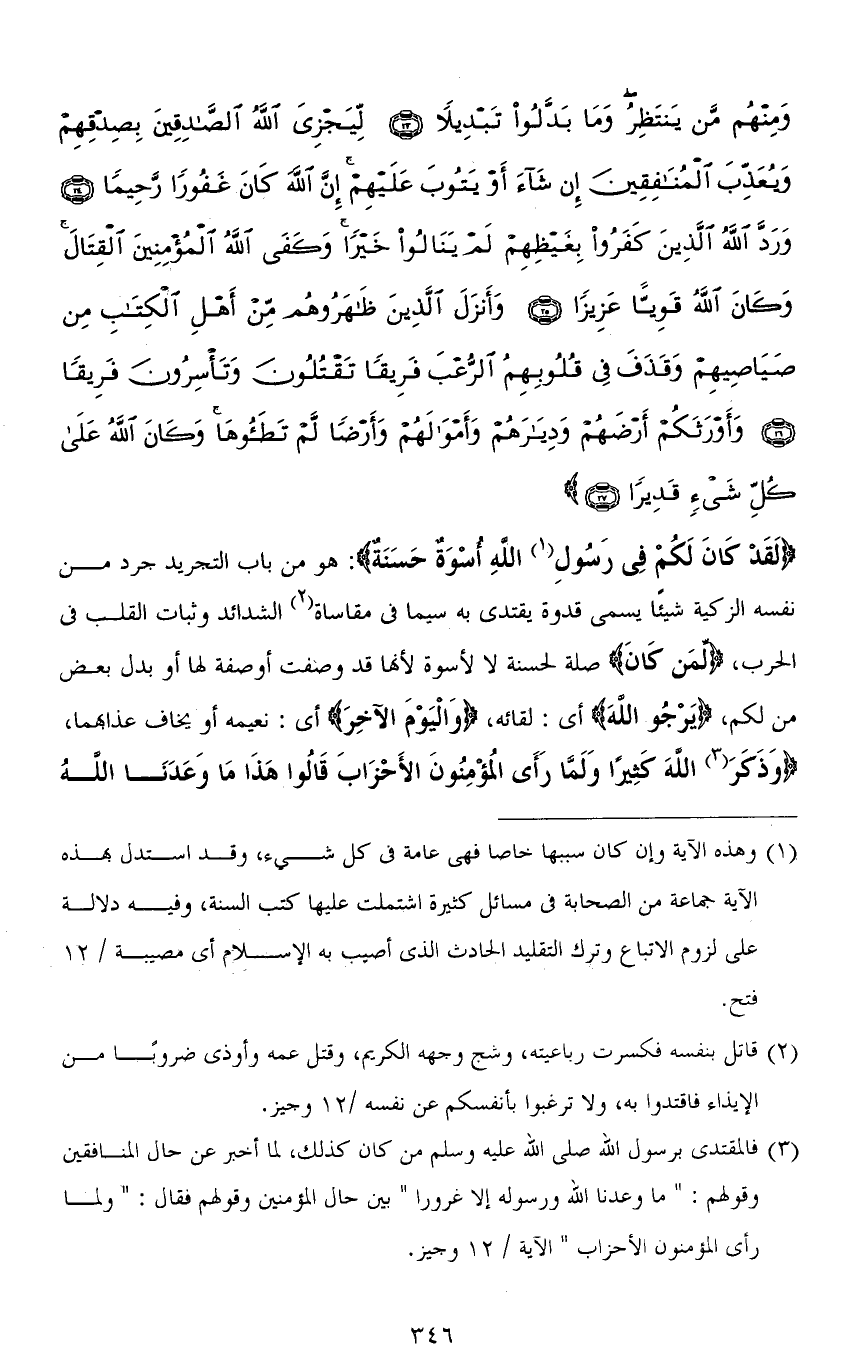 وَمِنْهُم مَّن يَنتَظِرُ ۖ وَمَا بَدَّلُوا۟ تَبْدِيلًا ﴿٢٣﴾ لِّيَجْزِىَ ٱللَّهُ ٱلصَّـٰدِقِينَ بِصِدْقِهِمْ
وَيُعَذِّبَ ٱلْمُنَـٰفِقِينَ إِن شَآءَ أَوْ يَتُوبَ عَلَيْهِمْ ۚ إِنَّ ٱللَّهَ كَانَ غَفُورًا رَّحِيمًا ﴿٢٤﴾
وَرَدَّ ٱللَّهُ ٱلَّذِينَ كَفَرُوا۟ بِغَيْظِهِمْ لَمْ يَنَالُوا۟ خَيْرًا ۚ وَكَفَى ٱللَّهُ ٱلْمُؤْمِنِينَ ٱلْقِتَالَ ۚ
وَكَانَ ٱللَّهُ قَوِيًّا عَزِيزًا ﴿٢٥﴾ وَأَنزَلَ ٱلَّذِينَ ظَـٰهَرُوهُم مِّنْ أَهْلِ ٱلْكِتَـٰبِ مِن
صَيَاصِيهِمْ وَقَذَفَ فِى قُلُوبِهِمُ ٱلرُّعْبَ فَرِيقًا تَقْتُلُونَ وَتَأْسِرُونَ فَرِيقًا
﴿٢٦﴾ وَأَوْرَثَكُمْ أَرْضَهُمْ وَدِيَـٰرَهُمْ وَأَمْوَٰلَهُمْ وَأَرْضًا لَّمْ تَطَـُٔوهَا ۚ وَكَانَ ٱللَّهُ عَلَىٰ
كُلِّ شَىْءٍ قَدِيرًا ﴿٢٧﴾ ﴾
﴿لَقَدْ كَانَ لَكُمْ فِى رَسُولِ(١) اللَّهِ أُسْوَةٌ حَسَنَةٌ﴾: هو من باب التجريد جرد مـــن
نفسه الزكية شيئًا يسمى قدوة يقتدى به سيما فى مقاساة(٢) الشدائد وثبات القلـب فى
الحرب، ﴿لِّمَن كَانَ﴾ صلة لحسنة لا لأسوة لأنها قد وصفت أوصفة لها أو بدل بعـض
من لكم، ﴿يَرْجُو اللَّهَ﴾ أى : لقائه، ﴿وَالْيَوْمَ الآخِرَ﴾ أى : نعيمه أو يخاف عذابهما،
﴿وَذَكَرَ(٣) اللَّهَ كَثِيرًا وَلَمَّا رَأَى الْمُؤْمِنُونَ الأَحْزَابَ قَالُوا هَذَا مَا وَعَدَنَــا اللَّــهُ
(١) وهذه الآية وإن كان سببها خاصا فهى عامة فى كل شــيء، وقــد اســتدل بهــذه
الآية جماعة من الصحابة فى مسائل كثيرة اشتملت عليها كتب السنة، وفيــه دلالــة
على لزوم الاتباع وترك التقليد الحادث الذى أصيب به الإســلام أى مصيبــة / ١٢
فتح.
(٢) قاتل بنفسه فكسرت رباعيته، وشج وجهه الكريم، وقتل عمه وأوذى ضروبًــا مــن
الإيذاء فاقتدوا به، ولا ترغبوا بأنفسكم عن نفسه /١٢ وجيز.
(٣) فالمقتدى برسول الله صلى الله عليه وسلم من كان كذلك، لما أخبر عن حال المنــافقين
وقولهم : " ما وعدنا الله ورسوله إلا غرورا " بين حال المؤمنين وقولهم فقال : " ولمــا
رأى المؤمنون الأحزاب " الآية / ١٢ وجيز.
٣٤٦